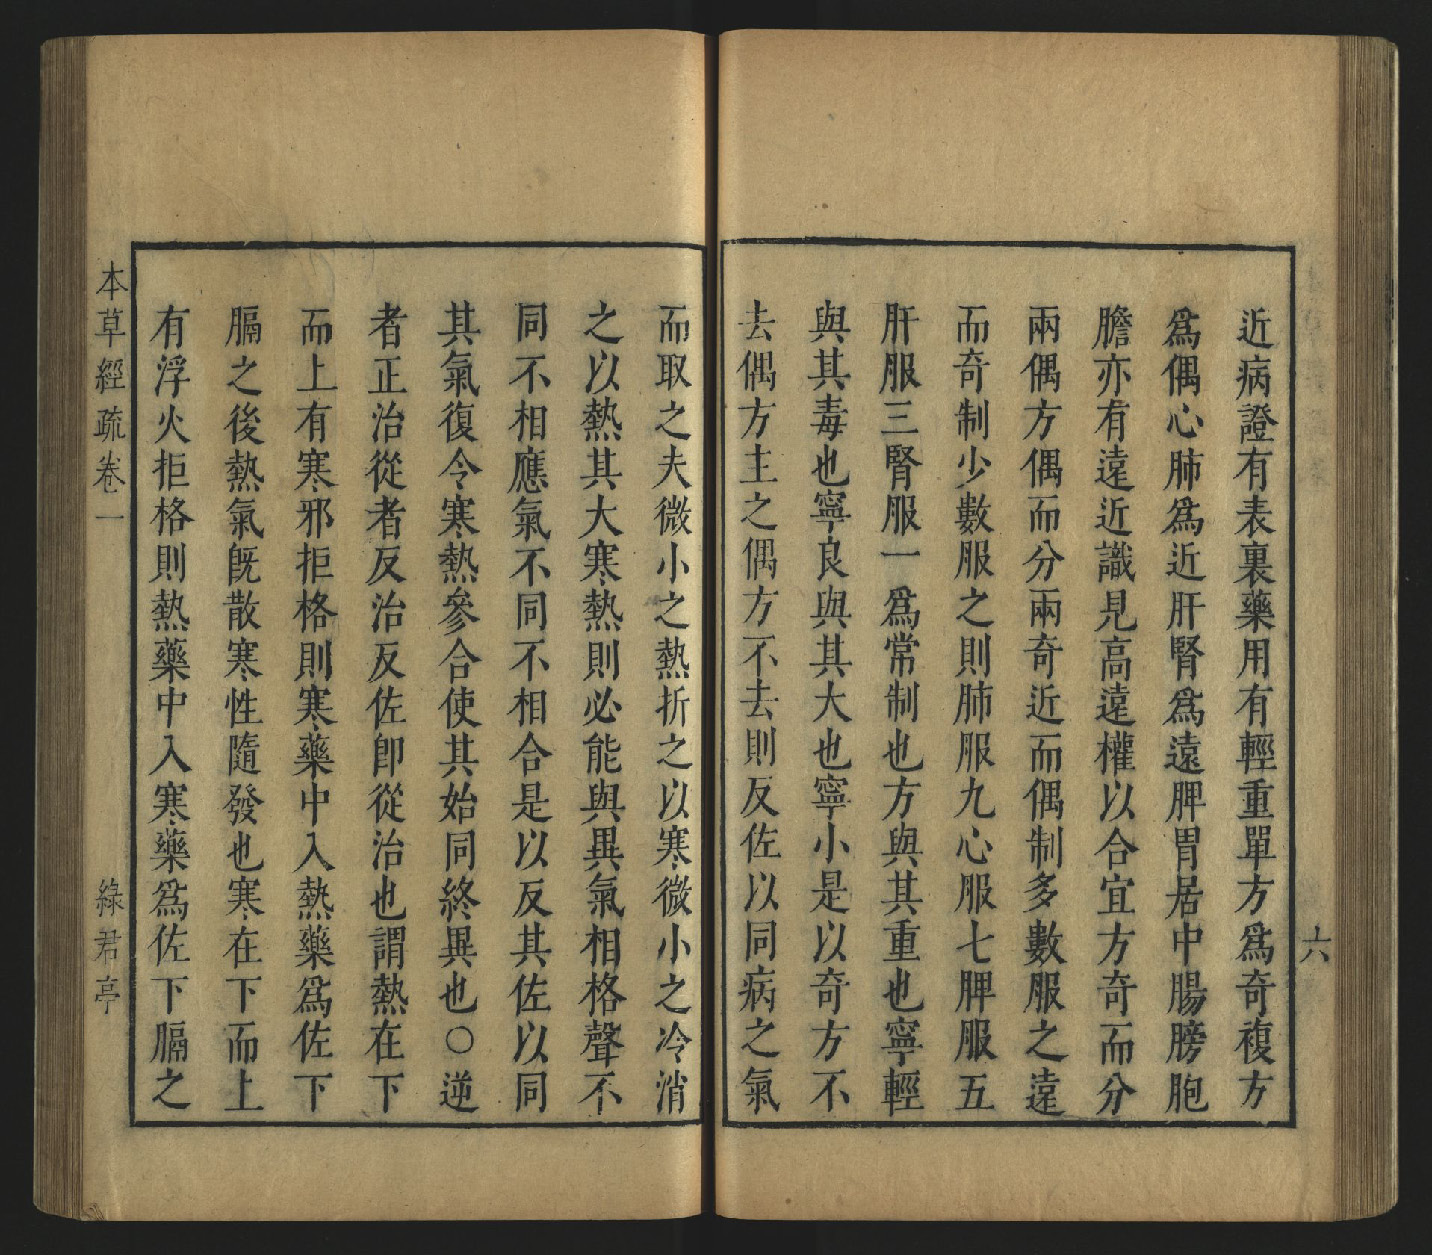 近病證有表裏藥用有輕重單方爲奇複方
爲偶心肺爲近肝腎爲遠脾胃居中腸膀胞
膽亦有遠近識見高遠權以合宜方奇而分
兩偶方偶而分兩奇近而偶制多數服之遠
而奇制少數服之則肺服九心服七脾服五
肝服三腎服一爲常制也方與其重也寧輕
與其毒也寧良與其大也寧小是以奇方不
去偶方主之偶方不去則反佐以同病之氣
六
而取之夫微小之熱折之以寒微小之冷消
之以熱其大寒熱則必能與異氣相格聲不
同不相應氣不同不相合是以反其佐以同
其氣復令寒熱參合使其始同終異也〇逆
者正治從者反治反佐卽從治也謂熱在下
而上有寒邪拒格則寒藥中入熱藥爲佐下
膈之後熱氣旣散寒性隨發也寒在下而上
有浮火拒格則熱藥中入寒藥爲佐下膈之
本草經疏卷一
綠君亭